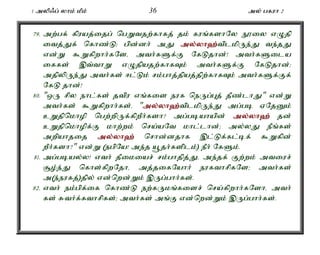 1 அலிஃப் லாம் மீம் 36 அல் பகரா 2
79. அற்பக் கிரயத்தைப் பெறுவதற்காகத் தம் கரங்களாலே நூலை எழுதி
வைத்துக் கொண்டு; பின்னர் அது அல்லாஹ்விடமிருந்து வந்தது
என்று கூறுகிறார்களே, அவர்களுக்கு கேடுதான்! அவர்களுடைய
கைகள் இவ்வாறு எழுதியதற்காகவும் அவர்களுக்கு கேடுதான்;
அதிலிருந்து அவர்கள் ஈட்டும் சம்பாத்தியத்திற்காகவும் அவர்களுக்குக்
கேடு தான்!
80. “ஒரு சில நாட்கள் தவிர எங்களை நரக நெருப்புத் தீண்டாது” என்று
அவர்கள் கூறுகிறார்கள். “அல்லாஹ்விடமிருந்து அப்படி ஏதேனும்
உறுதிமொழி பெற்றிருக்கிறீர்களா! அப்படியாயின் அல்லாஹ் தன்
உறுதிமொழிக்கு மாற்றம் செய்யவே மாட்டான்; அல்லது நீங்கள்
அறியாததை அல்லாஹ் சொன்னதாக இட்டுக்கட்டிக் கூறுகின்
றீர்களா?” என்று (நபியே அந்த யூதர்களிடம்) நீர் கேளும்.
81. அப்படியல்ல! எவர் தீமையைச் சம்பாதித்து, அந்தக் குற்றம் அவரைச்
சூழ்ந்து கொள்கிறதோ, அத்தகையோர் நரகவாசிகளே; அவர்கள்
அ(ந்நரகத்)தில் என்றென்றும் இருப்பார்கள்.
82. எவர் நம்பிக்கை கொண்டு நற்கருமங்களைச் செய்கிறார்களோ, அவர்
கள் சுவர்க்கவாசிகள்; அவர்கள் அங்கு என்றென்றும் இருப்பார்கள்.